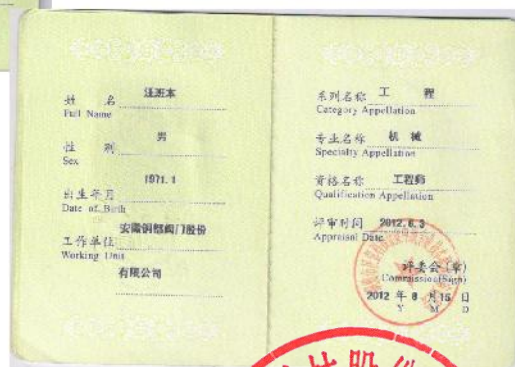 姓 名 汪班本
Full Name
性 别 男
Sex
1971.1
出生年月
Date of Birth
安徽铜都阀门股份
工作单位
Working Unit
有限公司
系列名称 工 程
Category Appellation
专业名称 机 械
Specialty Appellation
资格名称 工程师
Qualification Appellation
评审时间 2012.6.3
Appraisal Date
评委会(章)
Commission(Sigh)
2012 年 8 月 15 日
Y M D
股份